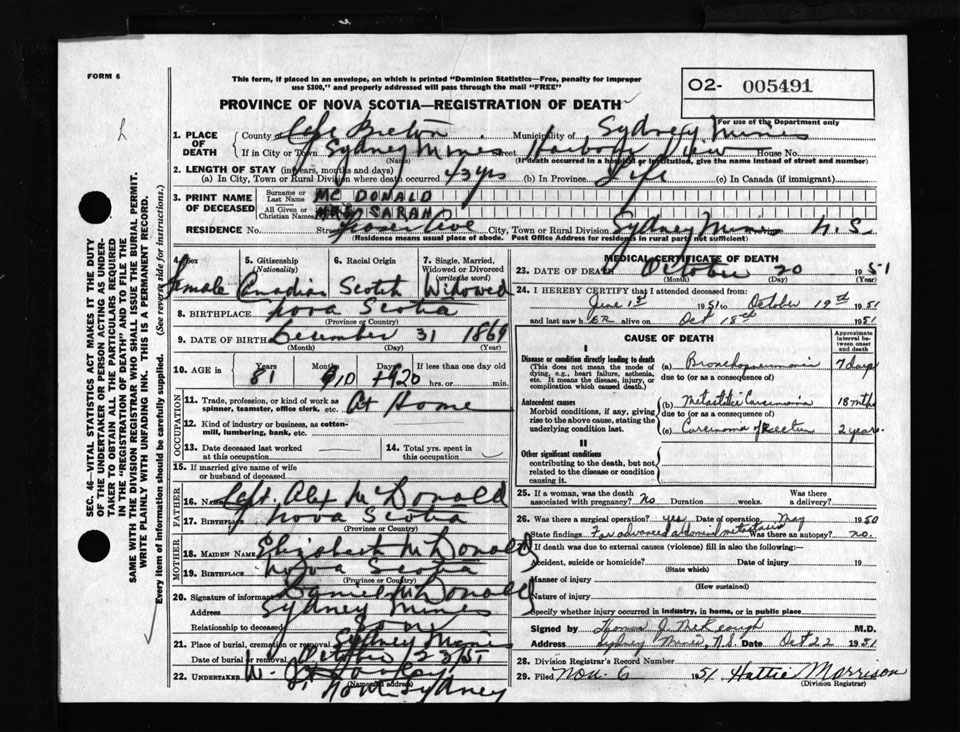 FORM 6
This form, if placed in an envelope, on which is printed "Dominion Statistics—Free, penalty for improper
use $300," and properly addressed will pass through the mail "FREE"
O2- 005491
PROVINCE OF NOVA SCOTIA—REGISTRATION OF DEATH
For use of the Department only
1. PLACE OF DEATH
County of Cape Breton Municipality of Sydney Mines
If in City or Town Sydney Mines Street Harbour View House No.
(Name) (If death occurred in a hospital or institution, give the name instead of street and number)
2. LENGTH OF STAY (in years, months and days)
(a) In City, Town or Rural Division where death occurred 43 yrs (b) In Province Life (c) In Canada (if immigrant)
3. PRINT NAME OF DECEASED
Surname or Last Name MC DONALD
All Given or Christian Names MRS SARAH
RESIDENCE No. Street Fraser Ave City, Town or Rural Division Sydney Mines N.S.
(Residence means usual place of abode. Post Office Address for residents in rural part not sufficient)
4. Sex 5. Citizenship (Nationality) 6. Racial Origin 7. Single, Married, Widowed or Divorced (write the word)
Female Canadian Scotch Widowed
8. BIRTHPLACE Nova Scotia
(Province or Country)
9. DATE OF BIRTH December 31 1869
(Month) (Day) (Year)
10. AGE in Years Months Days If less than one day old
81 20 hrs. or min.
OCCUPATION
11. Trade, profession, or kind of work as spinner, teamster, office clerk, etc. At Home
12. Kind of industry or business, as cotton-mill, lumbering, bank, etc.
13. Date deceased last worked at this occupation
14. Total yrs. spent in this occupation
15. If married give name of wife or husband of deceased
FATHER
16. Name Capt. Alex McDonald
17. Birthplace Nova Scotia
(Province or Country)
MOTHER
18. MAIDEN NAME Elizabeth McDonald
19. BIRTHPLACE Nova Scotia
(Province or Country)
20. Signature of informant Daniel McDonald
Address Sydney Mines
Relationship to deceased Son
21. Place of burial, cremation or removal Sydney Mines
Date of burial or removal October 23/51
22. UNDERTAKER W. J.
(Name and Address)
North Sydney
MEDICAL CERTIFICATE OF DEATH
23. DATE OF DEATH October 20 1951
(Month) (Day)
24. I HEREBY CERTIFY that I attended deceased from:
June 1st 1951 to October 19th 1951
and last saw h ER alive on Oct 18th 1951
CAUSE OF DEATH
Approximate interval between onset and death
I
Disease or condition directly leading to death
(This does not mean the mode of dying, e.g., heart failure, asthenia, etc. It means the disease, injury, or complication which caused death.)
(a) Bronchopneumonia 7 days
due to (or as a consequence of)
Antecedent causes
Morbid conditions, if any, giving rise to the above cause, stating the underlying condition last.
(b) Metastatic Carcinoma 18 mths
due to (or as a consequence of)
(c) Carcinoma of Rectum 2 years.
II
Other significant conditions
contributing to the death, but not related to the disease or condition causing it.
25. If a woman, was the death associated with pregnancy? No Duration weeks. Was there a delivery?
26. Was there a surgical operation? yes Date of operation May 1950
State findings Far advanced abdominal metastasis Was there an autopsy? no.
27. If death was due to external causes (violence) fill in also the following:—
Accident, suicide or homicide? Date of injury 19
(State which)
Manner of injury
(How sustained)
Nature of injury
Specify whether injury occurred in industry, in home, or in public place
Signed by Thomas J. McKeough M.D.
Address Sydney Mines, N.S. Date Oct 22 1951
28. Division Registrar's Record Number
29. Filed Nov. 6 1951 Hattie Morrison
(Division Registrar)
SEC. 46—VITAL STATISTICS ACT MAKES IT THE DUTY
OF THE UNDERTAKER OR PERSON ACTING AS UNDER-
TAKER TO OBTAIN ALL THE PARTICULARS REQUIRED
IN THE "REGISTRATION OF DEATH" AND TO FILE THE
SAME WITH THE DIVISION REGISTRAR WHO SHALL ISSUE THE BURIAL PERMIT.
WRITE PLAINLY WITH UNFADING INK. THIS IS A PERMANENT RECORD.
Every item of information should be carefully supplied. (See reverse side for instructions.)